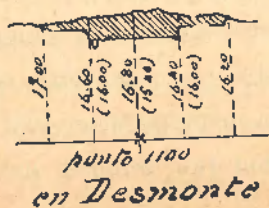 17.00
16.60
(16.00)
16.80
(15.40)
16.40
(16.00)
16.20
punto 1100
en Desmonte